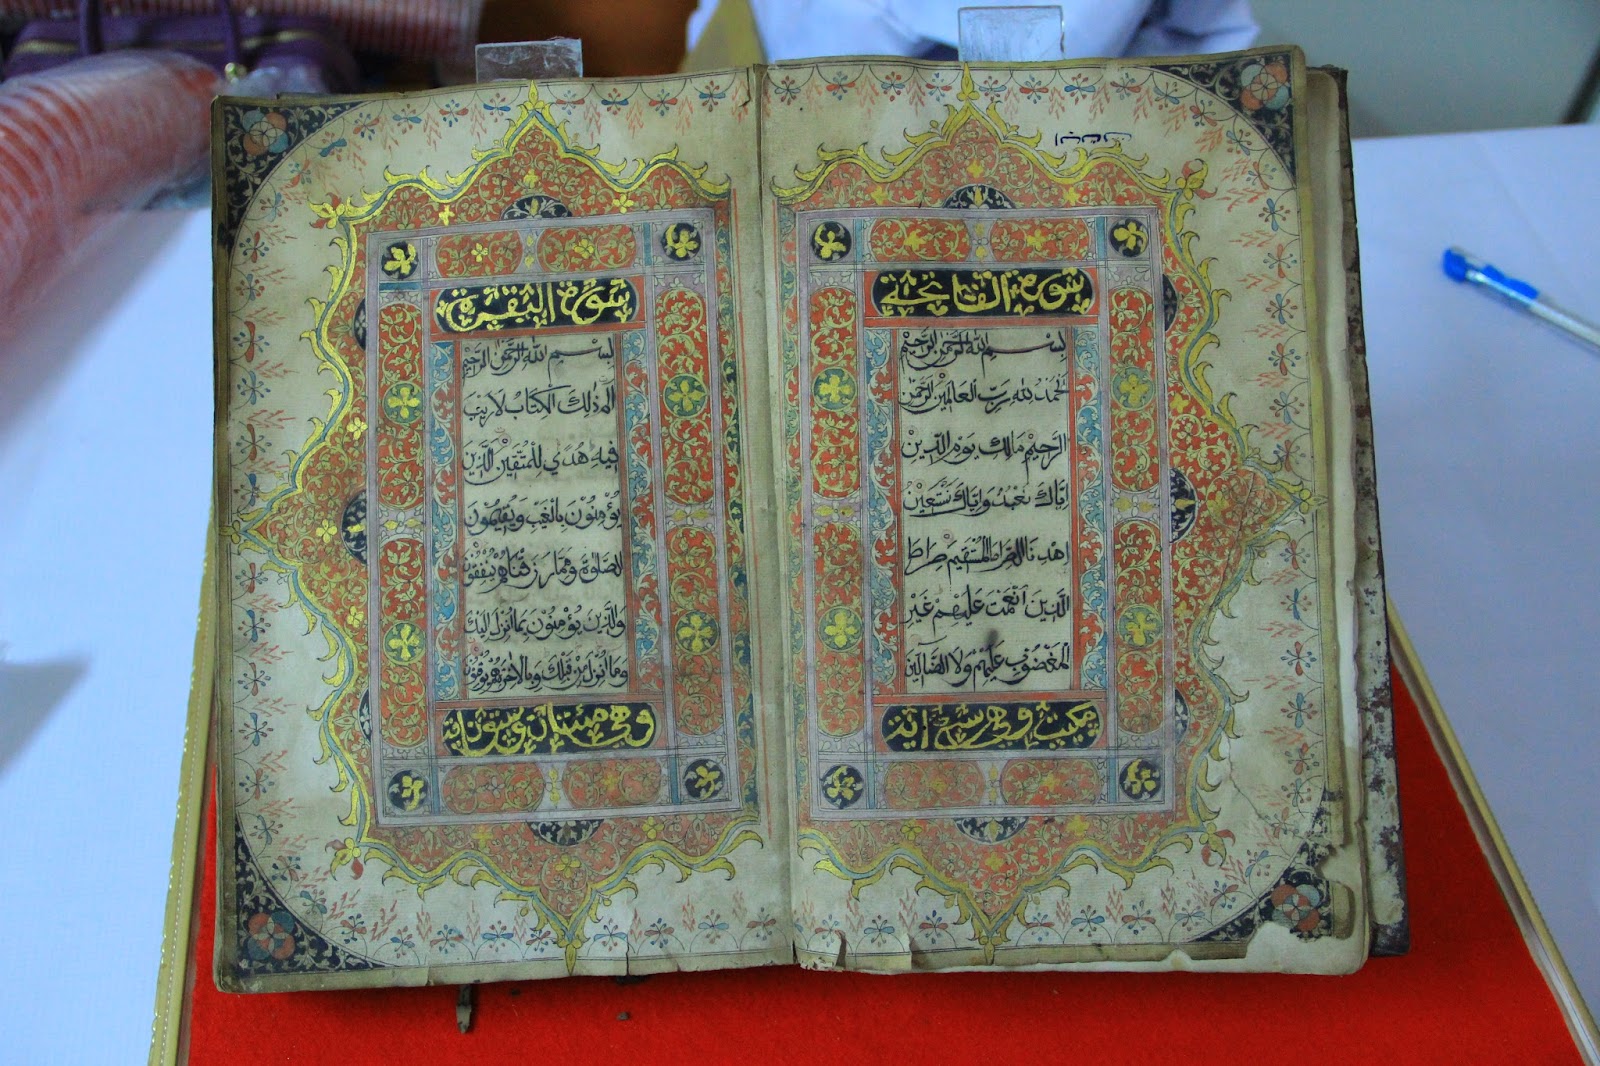 سورة الفاتحة
بسم الله الرحمن الرحيم
الحمد لله رب العالمين الرحمن
الرحيم مالك يوم الدين
اياك نعبد واياك نستعين
اهدنا الصراط المستقيم صراط
الذين انعمت عليهم غير
المغضوب عليهم ولا الضالين
وهي سبع اية
سورة البقرة
بسم الله الرحمن الرحيم
الم ذلك الكتاب لا ريب
فيه هدي للمتقين الذين
يؤمنون بالغيب ويقيمون
الصلوة ومما رزقناهم ينفقون
والذين يؤمنون بما انزل اليك
وما انزل من قبلك وبالاخرة هم يوقنون
وهي مئتان وست وثمانون اية